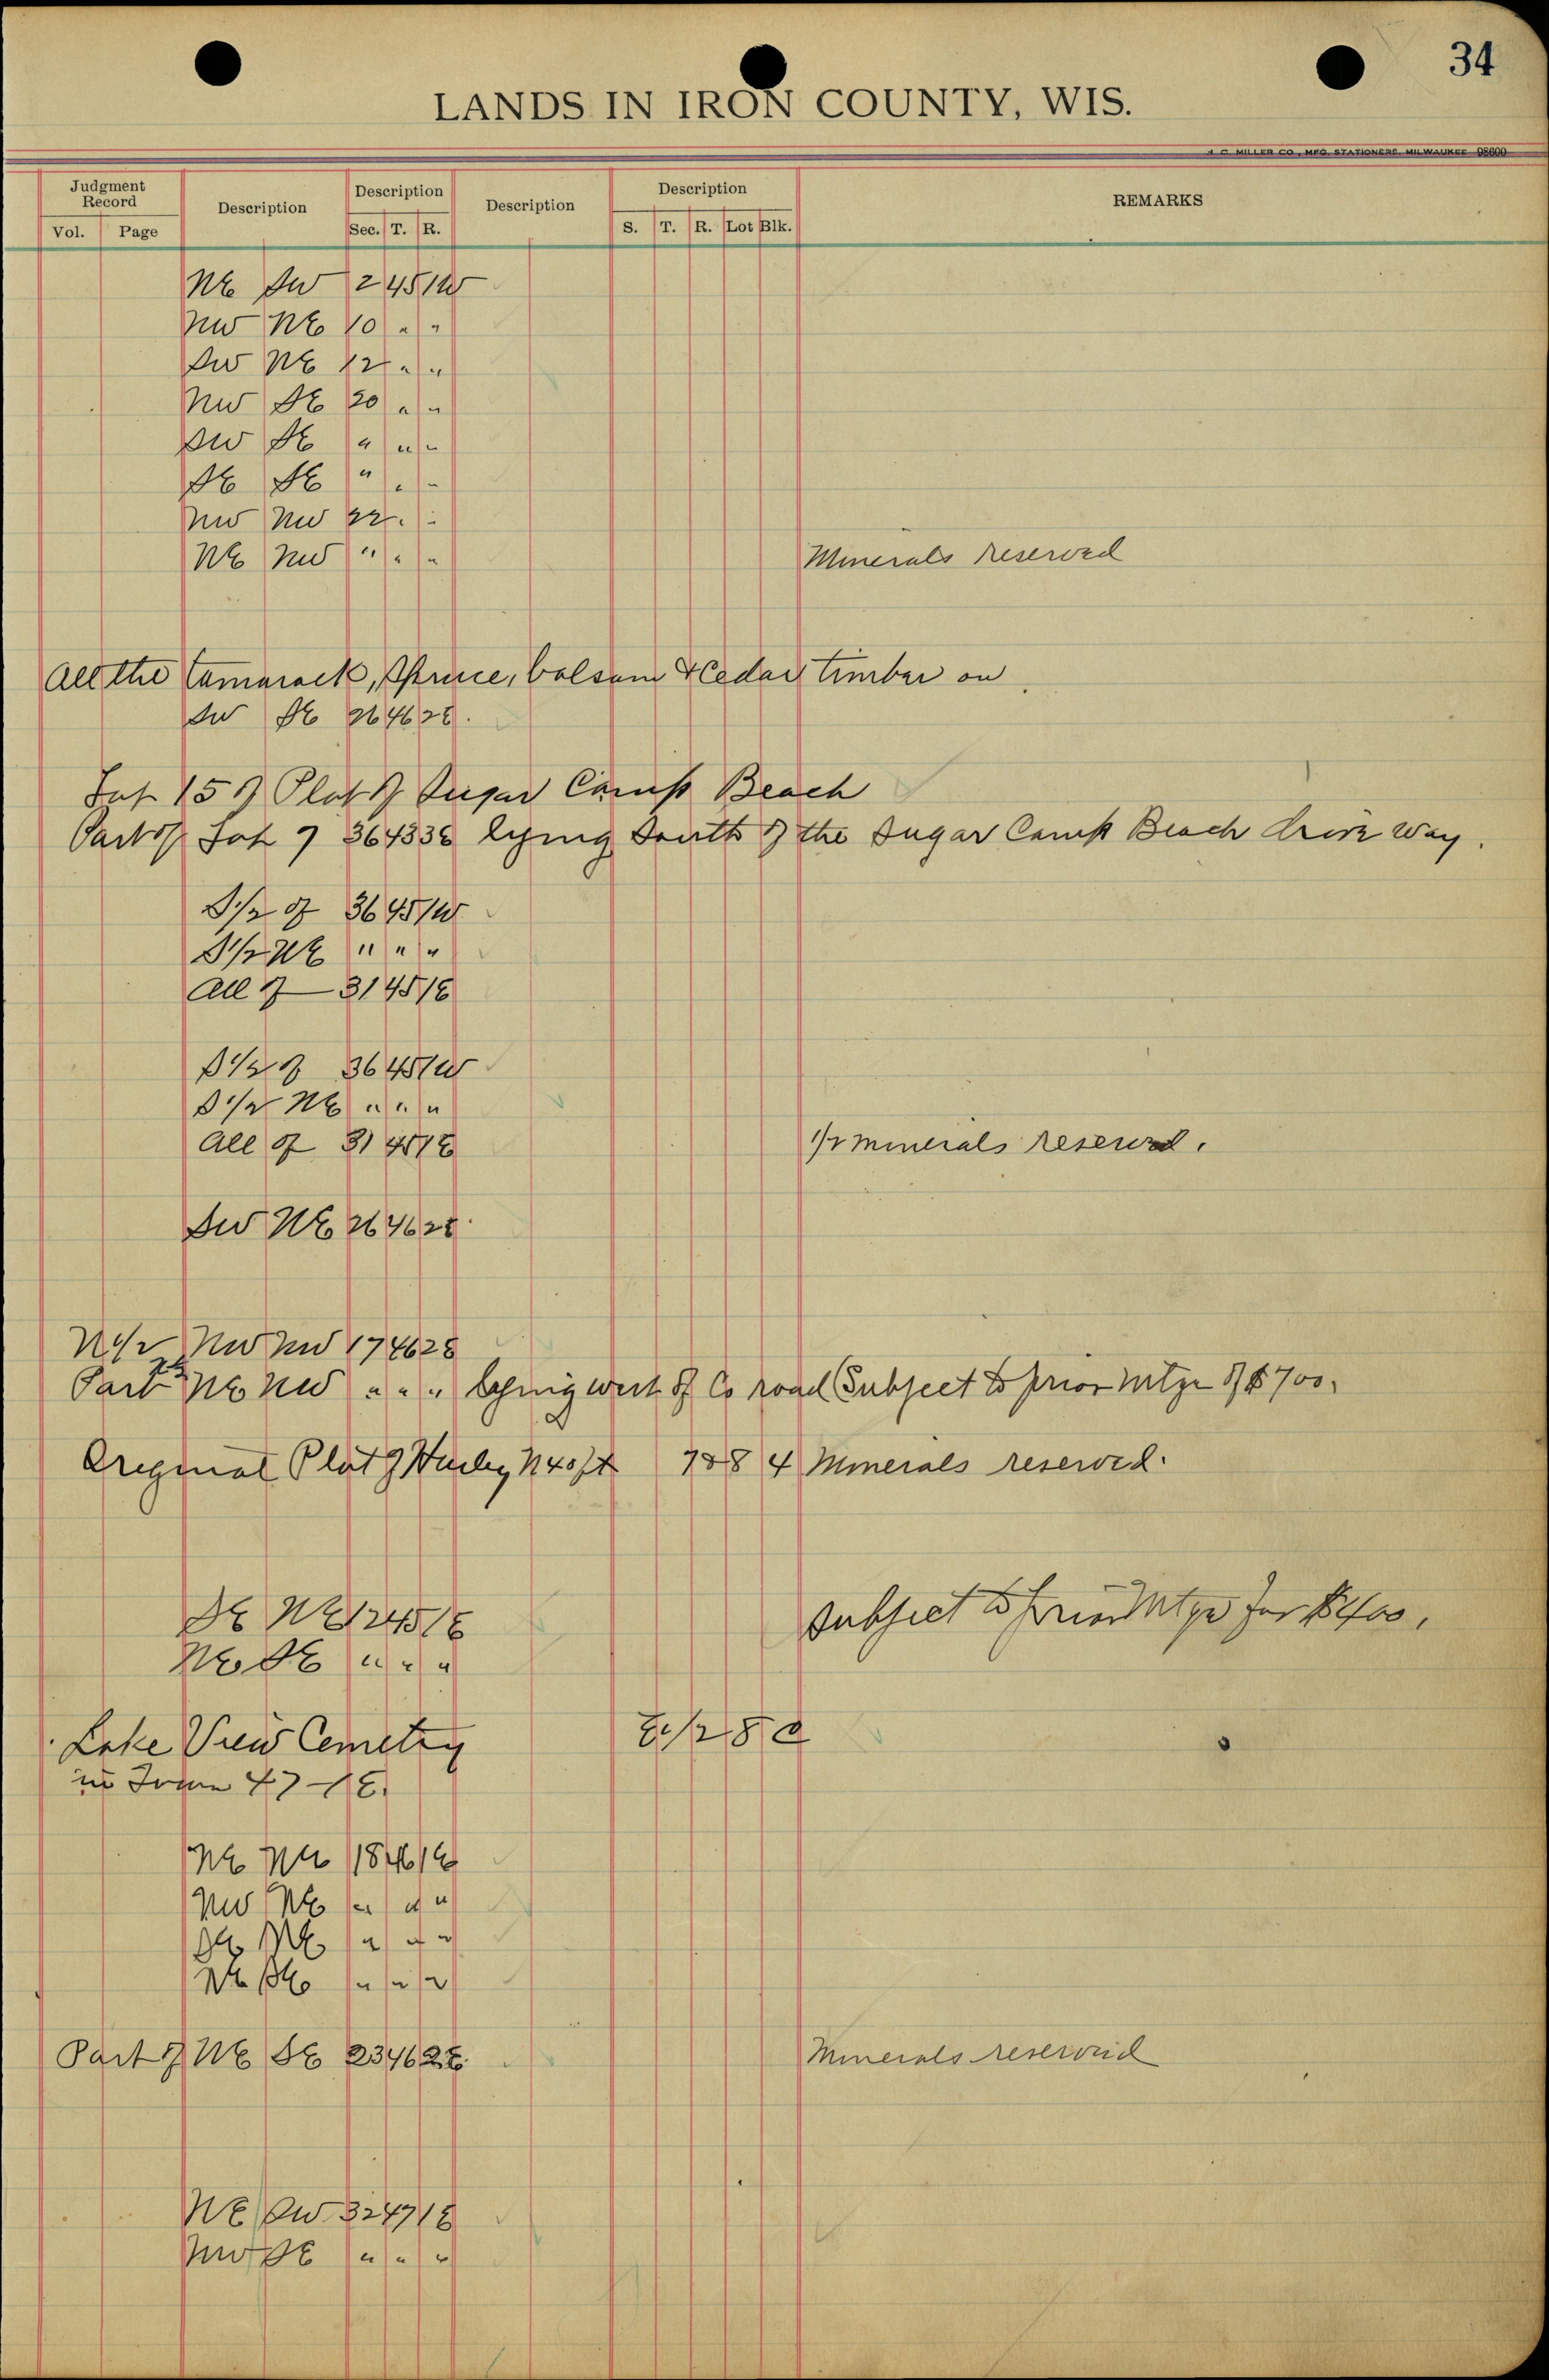 34
LANDS IN IRON COUNTY, WIS.
A. C. MILLER CO., MFG. STATIONERS. MILWAUKEE 98600
Judgment Record Description Description Description Description REMARKS
Vol. Page Sec. T. R. S. T. R. Lot Blk.
NE SW 2 45 1W
NW NE 10 " "
SW NE 12 " "
NW SE 20 " "
SW SE " " "
SE SE " " "
NW NW 22 " "
NE NW " " " Minerals reserved
All the Tamarack, Spruce, balsam & Cedar timber on
SW SE 26 46 2E.
Lot 15 of Plat of Sugar Camp Beach
Part of Lot 7 36 43 3E lying South of the Sugar Camp Beach drive way.
S1/2 of 36 45 1W
S1/2 NE " " "
All of 31 45 1E
S1/2 of 36 45 1W
S1/2 NE " " "
All of 31 45 1E 1/2 minerals reserved.
SW NE 26 46 2E
N1/2 NW NW 17 46 2E
Part NE NW " " " lying west of Co road Subject to prior mtge of $700.
Original Plat of Hurley N40ft 7&8 4 Minerals reserved.
SE NE 12 45 1E Subject to prior Mtge for $400.
NE SE " " "
Lake View Cemetery E1/2 8 2
in Town 47-1E.
NE NE 18 46 1E
NW NE " " "
SE NE " " "
NE SE " " "
Part of NE SE 23 46 2E. Minerals reserved
NE SW 32 47 1E
NW SE " " "